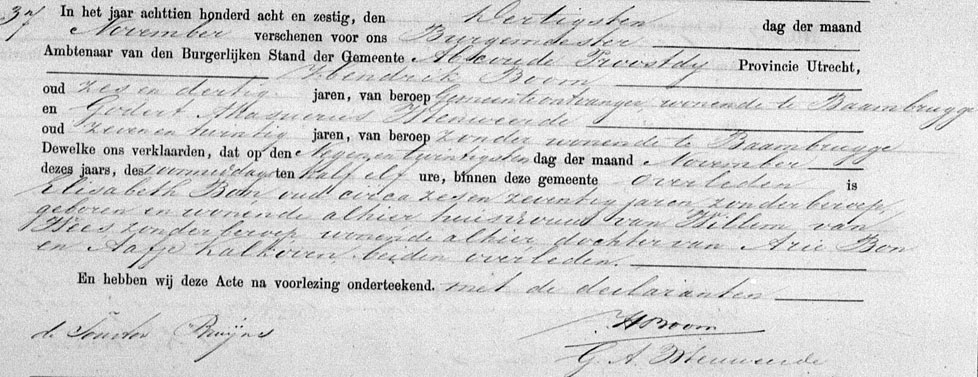 37 In het jaar achttien honderd acht en zestig, den Dertigsten dag der maand
November verschenen voor ons Burgemeester
Ambtenaar van den Burgerlijken Stand der Gemeente Abcoude Proostdy Provincie Utrecht,
Hendrik Boom
oud zes en dertig jaren, van beroep Gemeenteontvanger wonende te Baambrugge
en Godert
oud zeven en twintig jaren, van beroep zonder wonende te Baambrugge
Dewelke ons verklaarden, dat op den Negen en twintigsten dag der maand November
dezes jaars, des voormiddag ten half elf ure, binnen deze gemeente overleden is
Elisabeth Bon oud circa zes en zeventig jaren zonder beroep,
geboren en wonende alhier huisvrouw van Willem van
Wees zonder beroep wonende alhier dochter van Arie Bon
en Aafje Kalkoven beiden overleden.
En hebben wij deze Acte na voorlezing onderteekend. met de declaranten
HBoom
G. A.